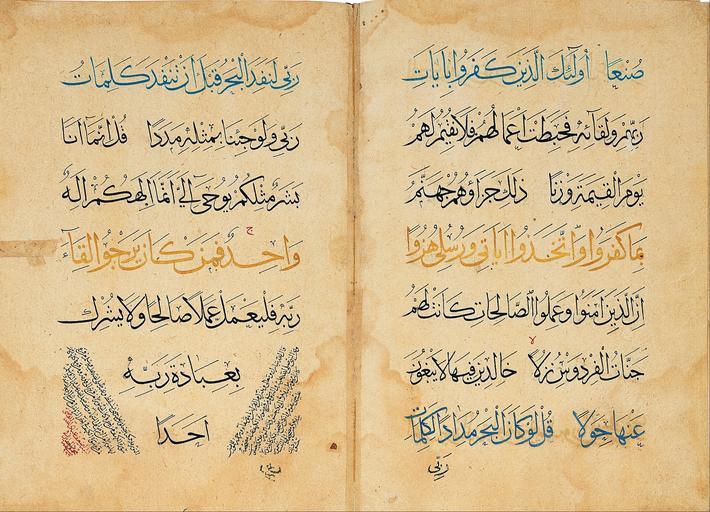 صُنْعًا أُولَٰئِكَ الَّذِينَ كَفَرُوا بِآيَاتِ
رَبِّهِمْ وَلِقَائِهِ فَحَبِطَتْ أَعْمَالُهُمْ فَلَا نُقِيمُ لَهُمْ
يَوْمَ الْقِيٰمَةِ وَزْنًا ذَٰلِكَ جَزَاؤُهُمْ جَهَنَّمُ
بِمَا كَفَرُوا وَاتَّخَذُوا آيَاتِي وَرُسُلِي هُزُوًا
إِنَّ الَّذِينَ آمَنُوا وَعَمِلُوا الصَّالِحَاتِ كَانَتْ لَهُمْ
جَنَّاتُ الْفِرْدَوْسِ نُزُلًا خَالِدِينَ فِيهَا لَا يَبْغُونَ
عَنْهَا حِوَلًا قُلْ لَوْ كَانَ الْبَحْرُ مِدَادًا لِكَلِمَاتِ
رَبِّي
رَبِّي لَنَفِدَ الْبَحْرُ قَبْلَ أَنْ تَنْفَدَ كَلِمَاتُ
رَبِّي وَلَوْ جِئْنَا بِمِثْلِهِ مَدَدًا قُلْ إِنَّمَا أَنَا
بَشَرٌ مِثْلُكُمْ يُوحَىٰ إِلَيَّ أَنَّمَا إِلَٰهُكُمْ إِلَٰهٌ
وَاحِدٌ فَمَنْ كَانَ يَرْجُوا لِقَاءَ
رَبِّهِ فَلْيَعْمَلْ عَمَلًا صَالِحًا وَلَا يُشْرِكْ
بِعِبَادَةِ رَبِّهِ
أَحَدًا